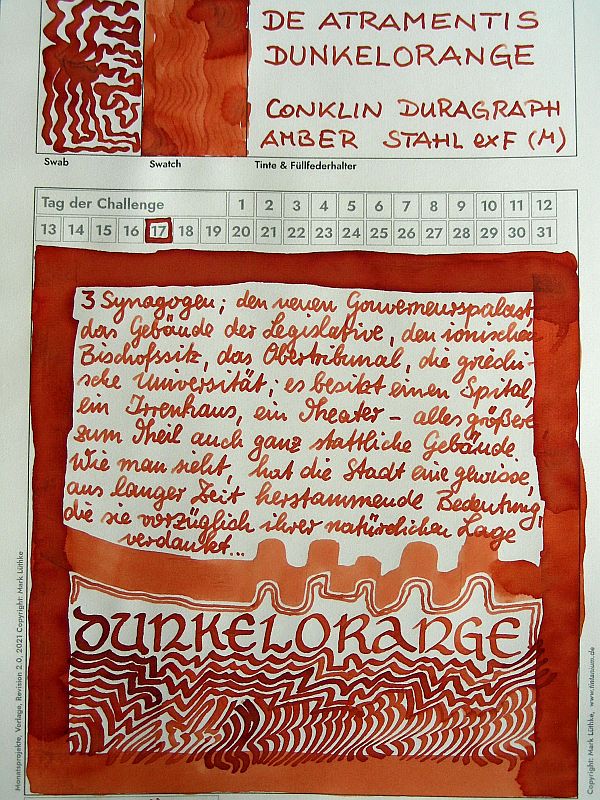 DE ATRAMENTIS
DUNKELORANGE
CONKLIN DURAGRAPH
AMBER STAHL exF (M)
Swab
Swatch
Tinte & Füllfederhalter
Tag der Challenge 1 2 3 4 5 6 7 8 9 10 11 12
13 14 15 16 17 18 19 20 21 22 23 24 25 26 27 28 29 30 31
3 Synagogen; den neuen Gouverneurspalast,
das Gebäude der Legislative, den ionischen
Bischofssitz, das Obertribunal, die griechi-
sche Universität; es besitzt einen Spital,
ein Irrenhaus, ein Theater – alles größere
zum Theil auch ganz stattliche Gebäude.
Wie man sieht, hat die Stadt eine gewisse,
aus langer Zeit herstammende Bedeutung,
die sie vorzüglich ihrer natürlichen Lage
verdanket...
DUNKELORANGE
Monatsprojekte, Vorlage, Revision 2.0, 2021 Copyright: Mark Lüthke
Copyright: Mark Lüthke, www.fintanium.de